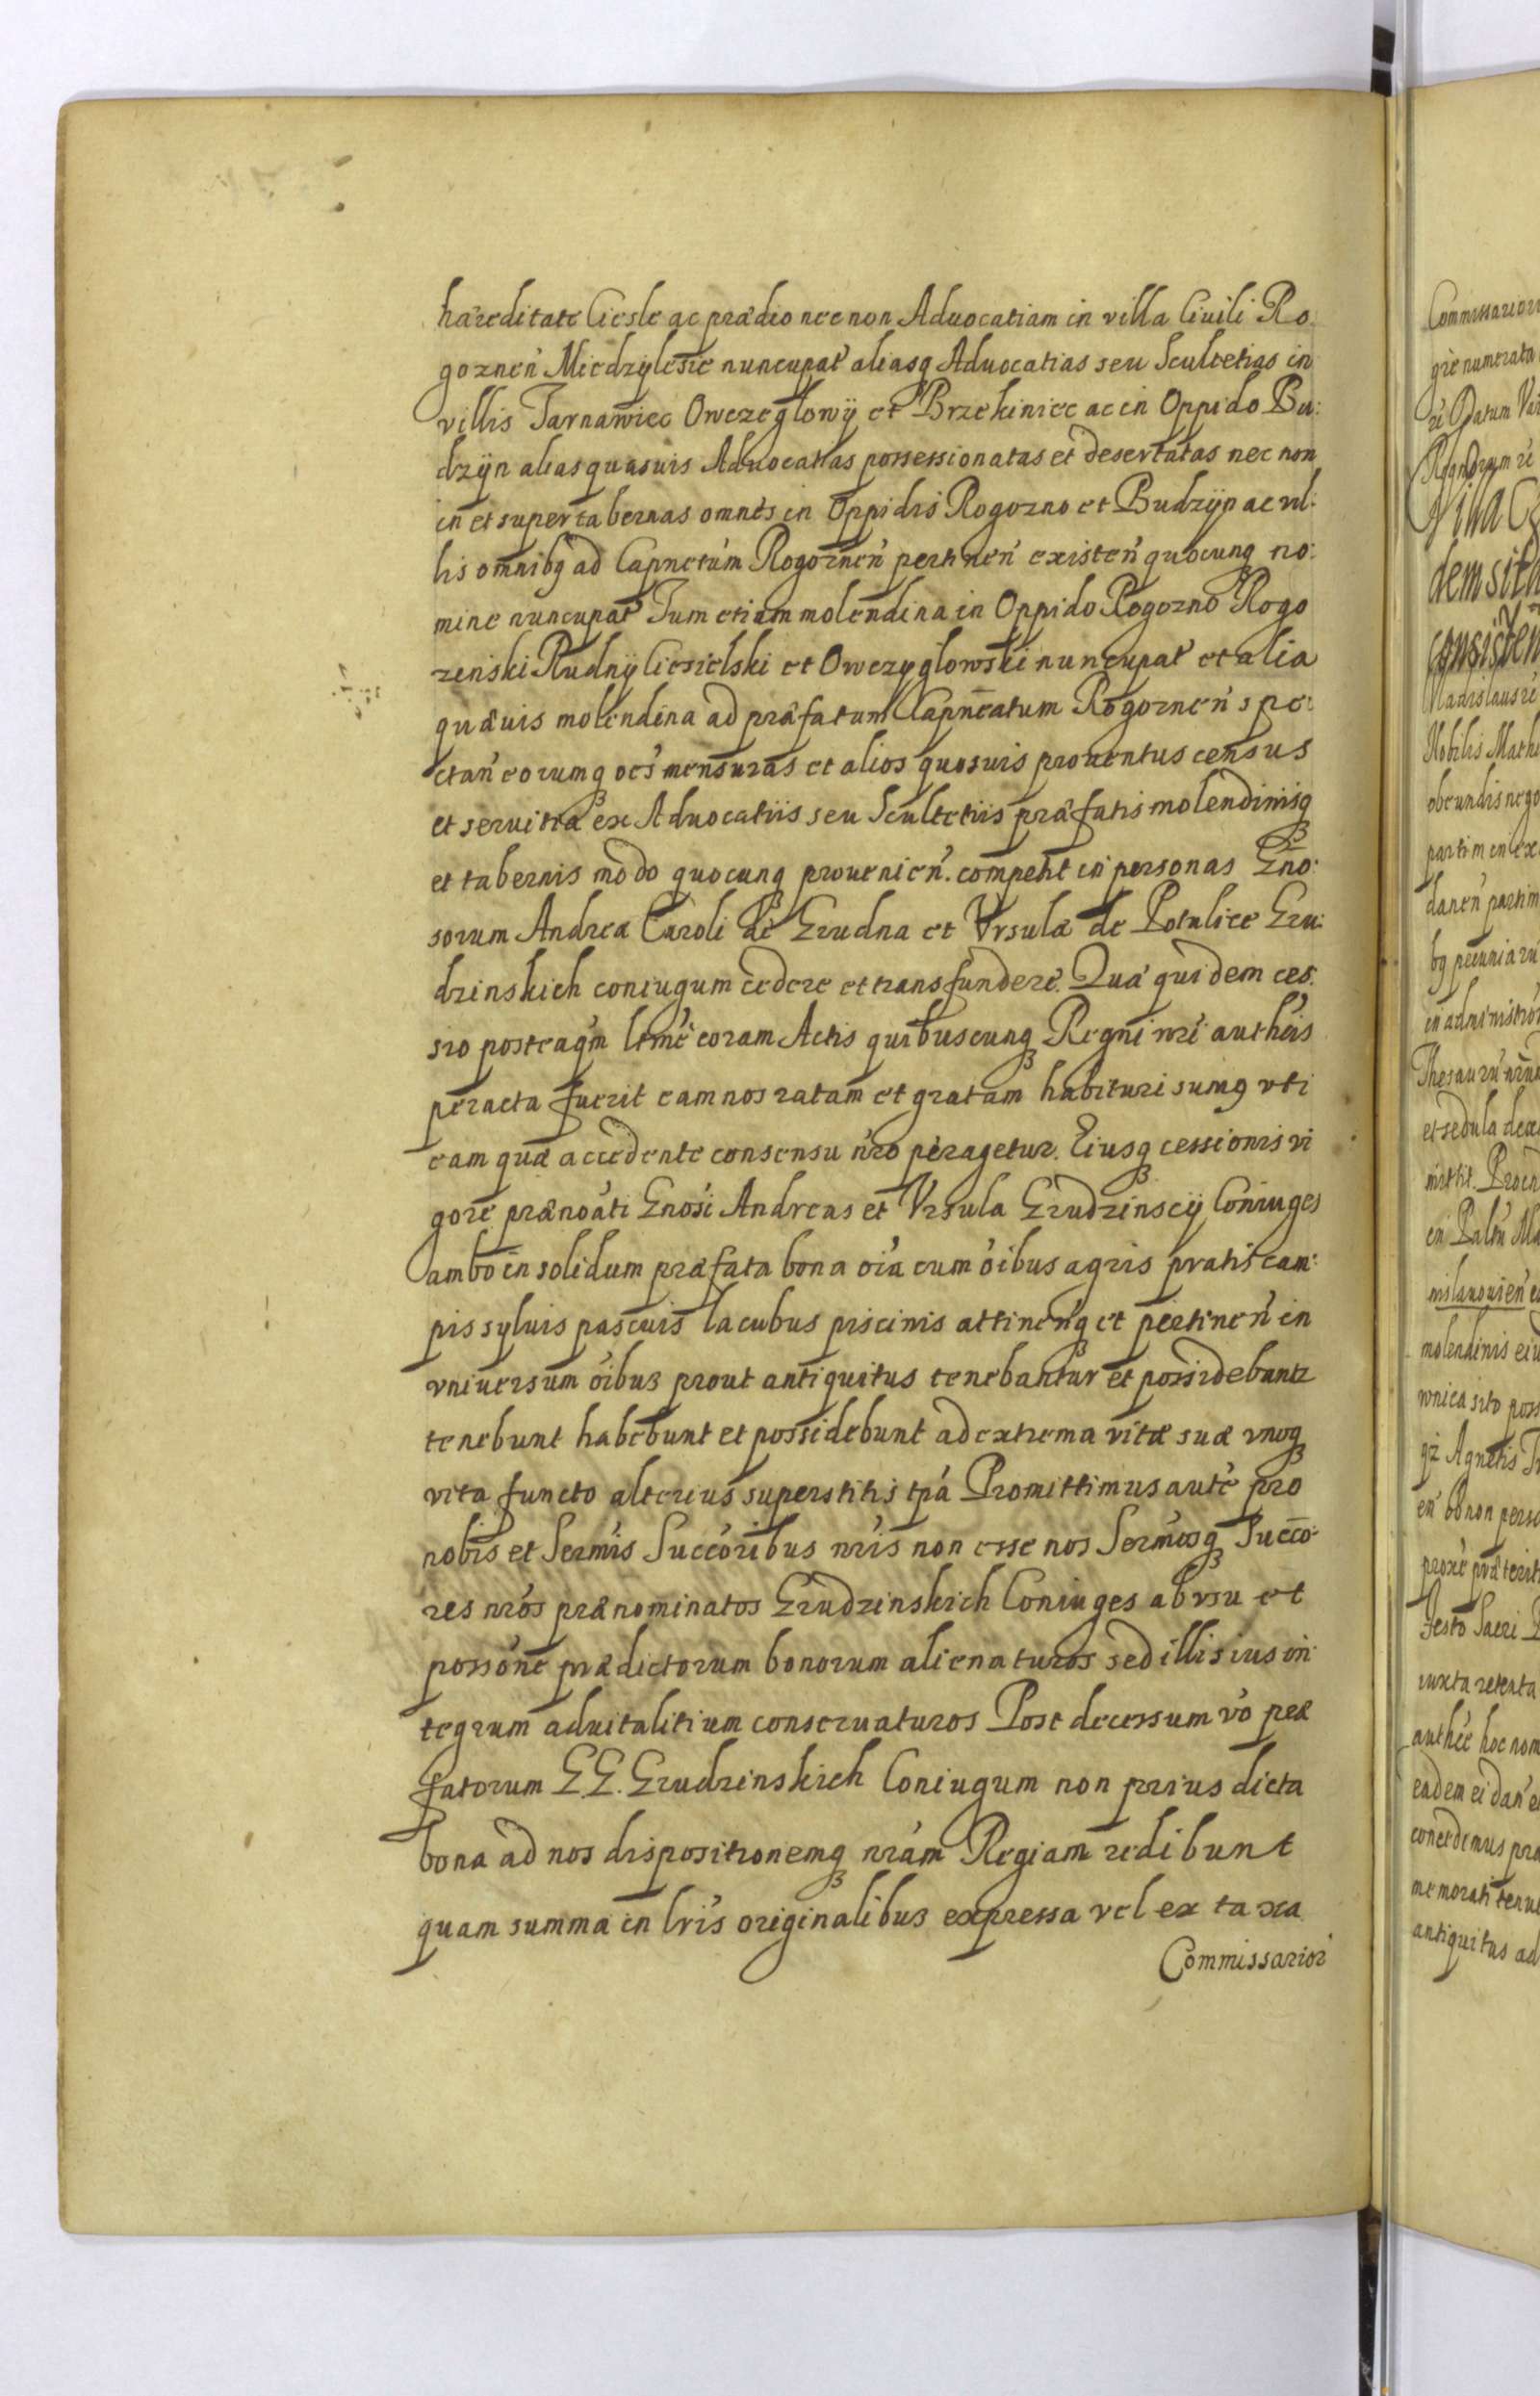 hæreditate Ciesle ac prædio nec non Aduocatiam in villa Ciuili Ro:
goznen̄ Miedzylesie nuncupat̄ aliasq Aduocatias seu Scultetias in
villis Tarnawiec Owczeglowÿ et Brzekiniec ac in Oppido Bu:
dzÿn alias quasuis Aduocatias possessionatas et desertatas nec non
in et super tabernas omnes in Oppidis Rogozno et Budzÿn ac vil:
lis omnibꝫ ad Capnetūm Rogoznen̄ pertinen̄ existen̄ quocunqꝫ no:
mine nuncupat̄ Tum etiam molendina in Oppido Rogozno Rogo
zenski Rudnÿ Ciesielski et Owczyglowski nuncupat̄ et alia
quæuis molendina ad præfatum Capn̄eatum Rogoznen̄ spe:
ctan̄ eorumqꝫ oēs mensuras et alios quosuis prouentus census
et seruitia ex Aduocatiis seu Scultetiis præfatis molendinisqꝫ
et tabernis modo quocunqꝫ prouenien̄. competit̄ in personas Gn̄o:
sorum Andreæ Caroli de Grudna et Vrsulæ de Potulice Gru:
dzinskich coniugum cedere et transfundere. Quæ quidem ces:
sio posteaqm̄ ltm̄e coram Actis quibuscunqꝫ Regni nr̄i authēis
peracta fuerit eam nos ratam et gratam habituri sumꝯ vti
eam quæ accedente consensu nr̄o peragetur. Eiusqꝫ cessionis vi
gore prænoāti Gnōsi Andreas et Vrsula Grudzinscÿ Coniuges
ambo in solidum præfata bona oīa cum oībus agris pratis cam:
pis syluis pascuis lacubus piscinis attinen̄qꝫ et pertinen̄ in
vniuersum oībus prout antiquitus tenebantur et possidebantr
tenebunt habebunt et possidebunt ad extrema vitæ suæ vnoqꝫ
vita functo alterius superstitis tpā Promittimus autē pro
nobis et Serm̄is Succōribus nr̄is non esse nos Serm̄osqꝫ Succō:
res nr̄os prænominatos Grudzinskich Coniuges ab vsu et
possōne prædictorum bonorum alienaturos sed illis ius in:
tegrum aduitalitium conseruaturos Post decessum vō præ
fatorum G.G. Grudzinskich Coniugum non prius dicta
bona ad nos dispositionemqꝫ nrām Regiam redibunt
quam summa in lr̄is originalibus expressa vel ex taxa
Commissarior̄